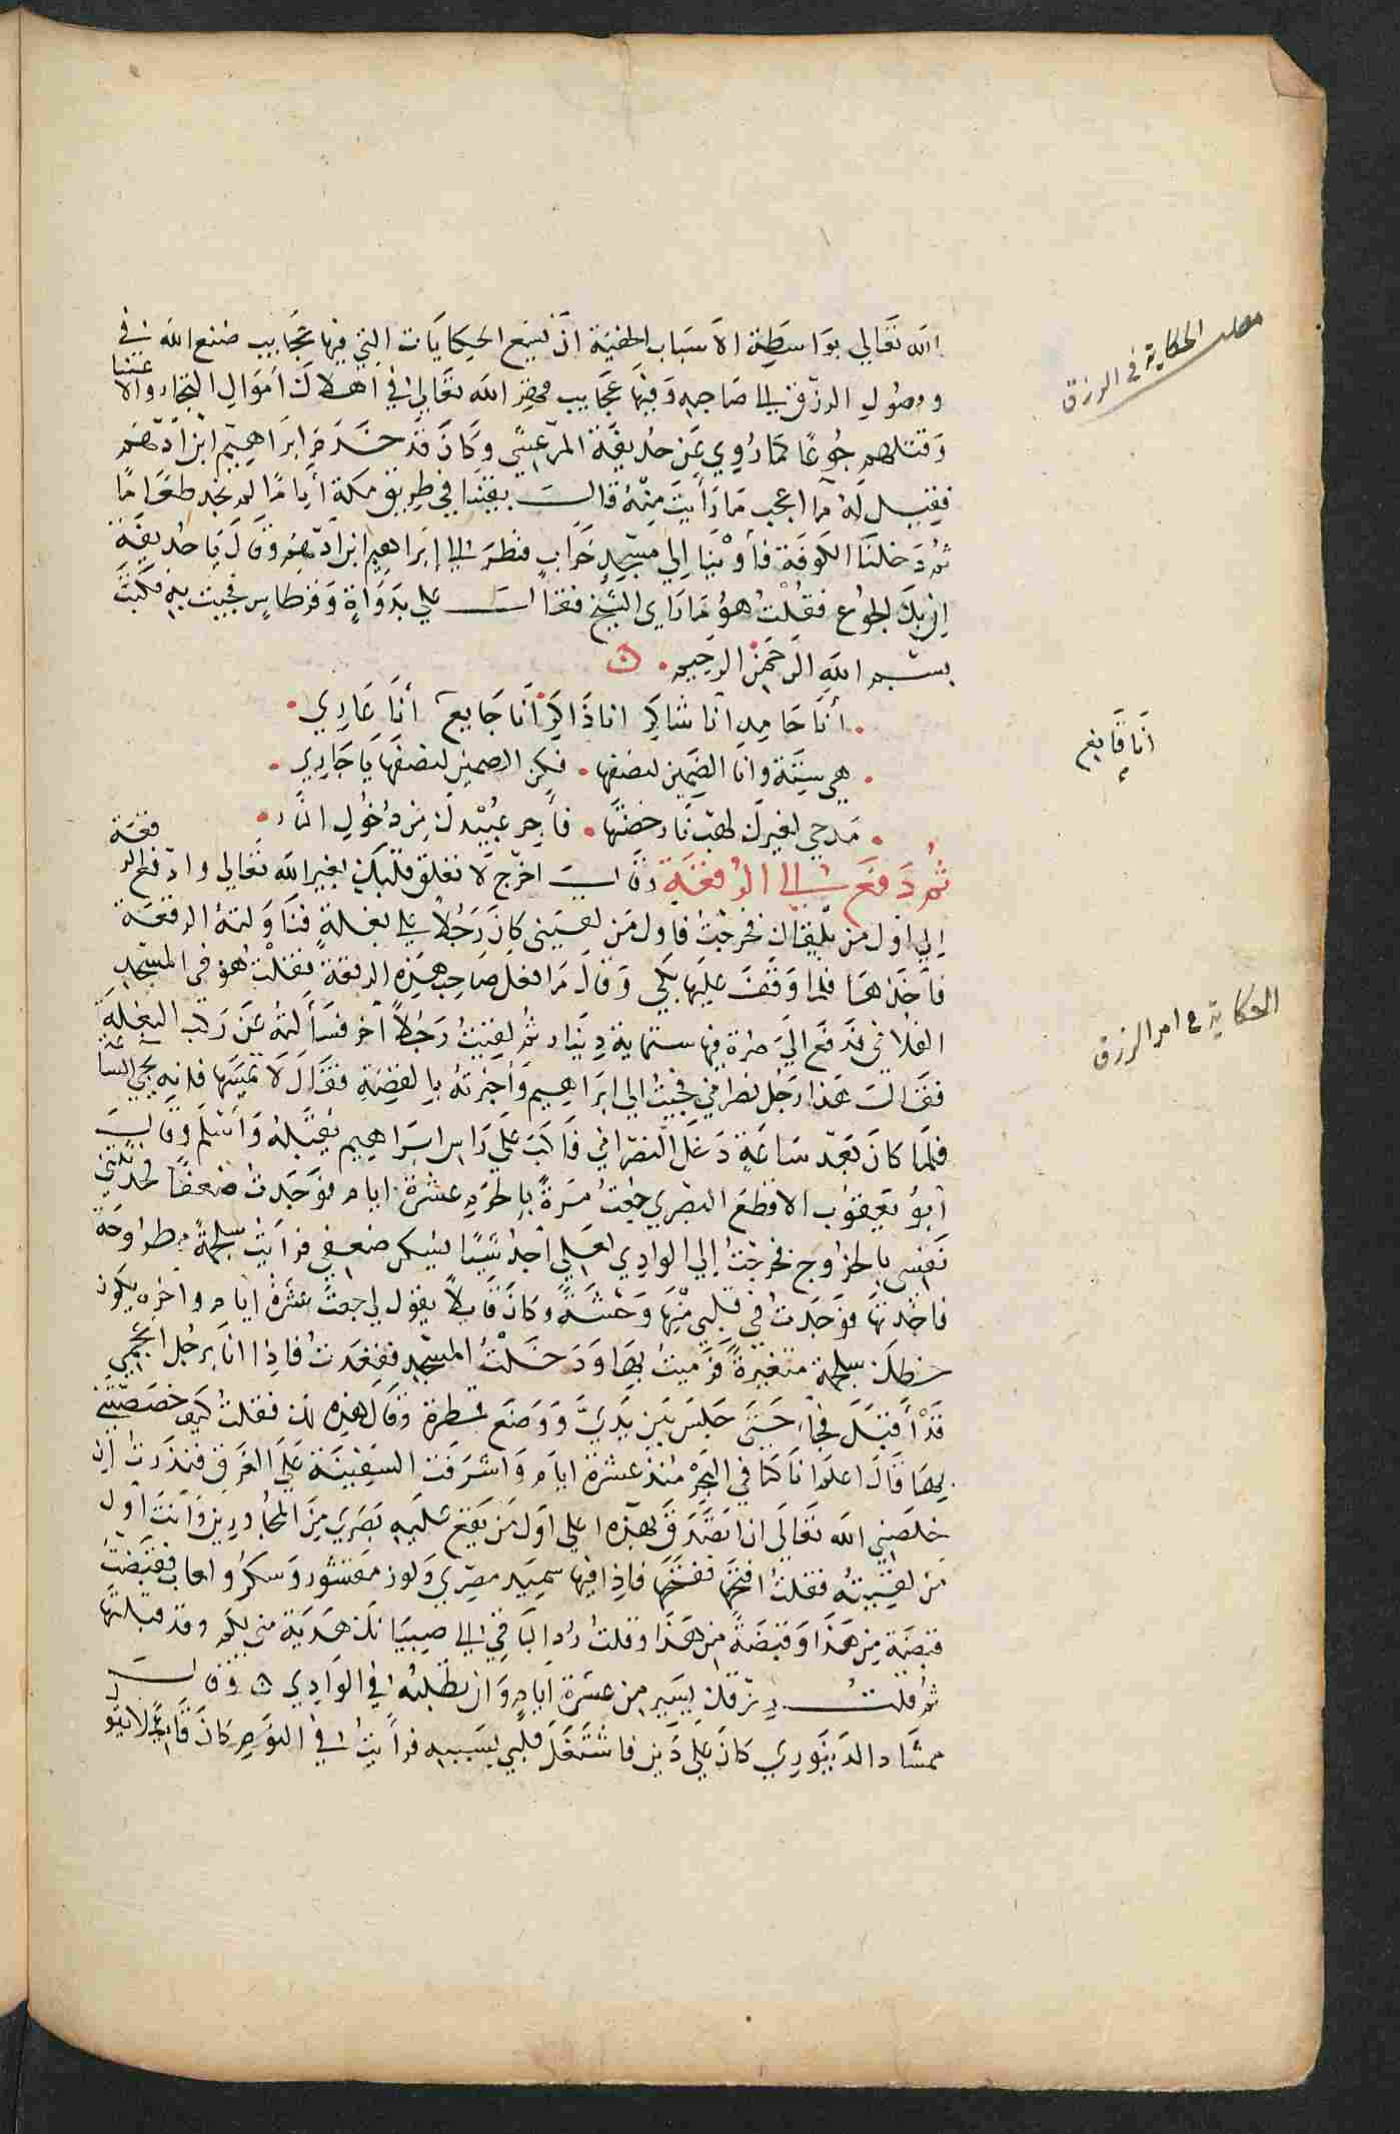 الله تعالى بواسطة الاسباب الخفية ان تسمع الحكايات التي فيها عجايب صنع الله في
وصول الرزق الى صاحبه وفيها عجايب قهر الله تعالى في اهلاك اموال التجار والاغنيا
وقتلهم جوعا كما روي عن حذيفة المرعشي وكان قد خدم ابراهيم ابن ادهم
فقيل له ما اعجب ما رأيت منه قال بقينا في طريق مكة أياما لم نجد طعاما
ثم دخلنا الكوفة فأوينا إلى مسجد خراب فنظر الي إبراهيم ابن ادهم وقال يا حذيفة
ارى بك الجوع فقلت هو ما راى الشيخ فقال علي بدواة وقرطاس فجيت به فكتب
بسم الله الرحمن الرحيم
أنا حامد انا شاكر انا ذاكر أنا جايع أنا عاري
هي ستة وانا الضمين لنصفها فكن الضمين لنصفها يا جاري
مدحي لغيرك لهب نار خضتها فأجر عبيدك من دخول النار
ثم دفع الي الرقعة وقال اخرج لا تعلق قلبك بغير الله تعالى وادفع الرقعة
إلى اول من يلقاك فخرجت فاول من لقيني كان رجلا على بغلة فناولته الرقعة
فأخذها فلما وقف عليها بكى وقال ما فعل صاحب هذه الرقعة فقلت هو في المسجد
الفلاني فدفع الي صرة فيها ستماية دينار ثم لقيت رجلا آخر فسألته عن راكب البغلة
فقال هذا رجل نصراني فجيت الى ابراهيم وأخبرته بالقصة فقال لا تمسها فانه يجي الساعة
فلما كان بعد ساعة دخل النصراني فأكب على راس ابراهيم يقبله وأسلم وقال
ابو يعقوب الاقطع البصري جعت مرة بالحرم عشرة ايام فوجدت ضعفا فحدثتني
نفسي بالخروج فخرجت إلى الوادي لعلي أجد شيا ليسكن ضعفي فرايت سلجمة مطروحة
فاخذتها فوجدت في قلبي منها وحشة وكان قايلا يقول لي جعت عشرة ايام واخره يكون
حظك سلجمة متغيرة فرميت بها ودخلت المسجد فقعدت فاذا انا برجل اعجمي
قد أقبل فجا حتى جلس بين يدي ووضع قمطرة وقال هذه لك فقلت كيف خصصتني
بها قال اعلم انا كنا في البحر منذ عشرة ايام واشرفت السفينة على الغرق فنذرت ان
خلصني الله تعالى ان اتصدق بهذه على اول من يقع عليه بصري من المجاورين وانت اول
من لقيته فقلت افتحها ففتحها فاذا فيها سميد مصري ولوز مقشور وسكر وكعاب فقبضت
قبضة من هذا وقبضة من هذا وقلت رد الباقي الى صبيانك هدية مني لكم وقد قبلتها
ثم قلت رزقك يسير من عشرة ايام وان تطلبه في الوادي وقال
ممشاد الدينوري كان علي دين فاشتغل قلبي بسببه فرأيت في النوم كان قايلا يقول
مطلب الحكاية في الرزق
أنا قانع
الحكاية في امر الرزق